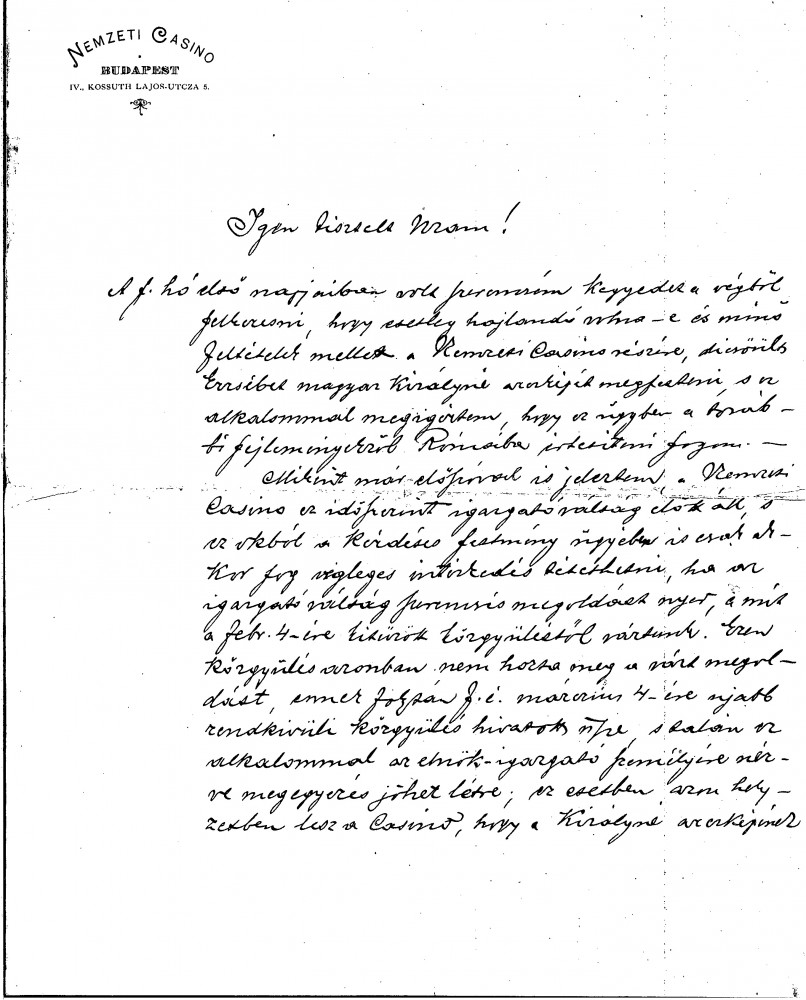 NEMZETI CASINO
BUDAPEST
IV., KOSSUTH LAJOS-UTCZA 5.
Igen tisztelt Uram!
A f. hó első napjaiban volt szerencsém kegyedet a végből
felkeresni, hogy esetleg hajlandó volna-e és minő
feltételek mellett a Nemzeti Casino részére, dicsőült
Erzsébet magyar Királyné arczképét megfesteni, s ez
alkalommal megigértem, hogy ez ügyben a továb-
bi fejleményekről Rómába értesiteni fogom. —
Miként már előszóval is jeleztem, a Nemzeti
Casino ez időszerint igazgató válság előtt áll, s
ez okból a kérdéses festmény ügyében is csak ak-
kor fog végleges intézkedés tétethetni, ha az
igazgató válság szerencsés megoldást nyer, a mit
a febr. 4-ére kitűzött közgyűléstől vártunk. Ezen
közgyűlés azonban nem hozta meg a várt megol-
dást, ennek folytán f. é. márczius 4-ére ujabb
rendkivüli közgyűlés hivatott össze, s talán ez
alkalommal az elnök-igazgató személyére néz-
ve megegyezés jöhet létre; ez esetben azon hely-
zetben lesz a Casino, hogy a Királyné arczképének